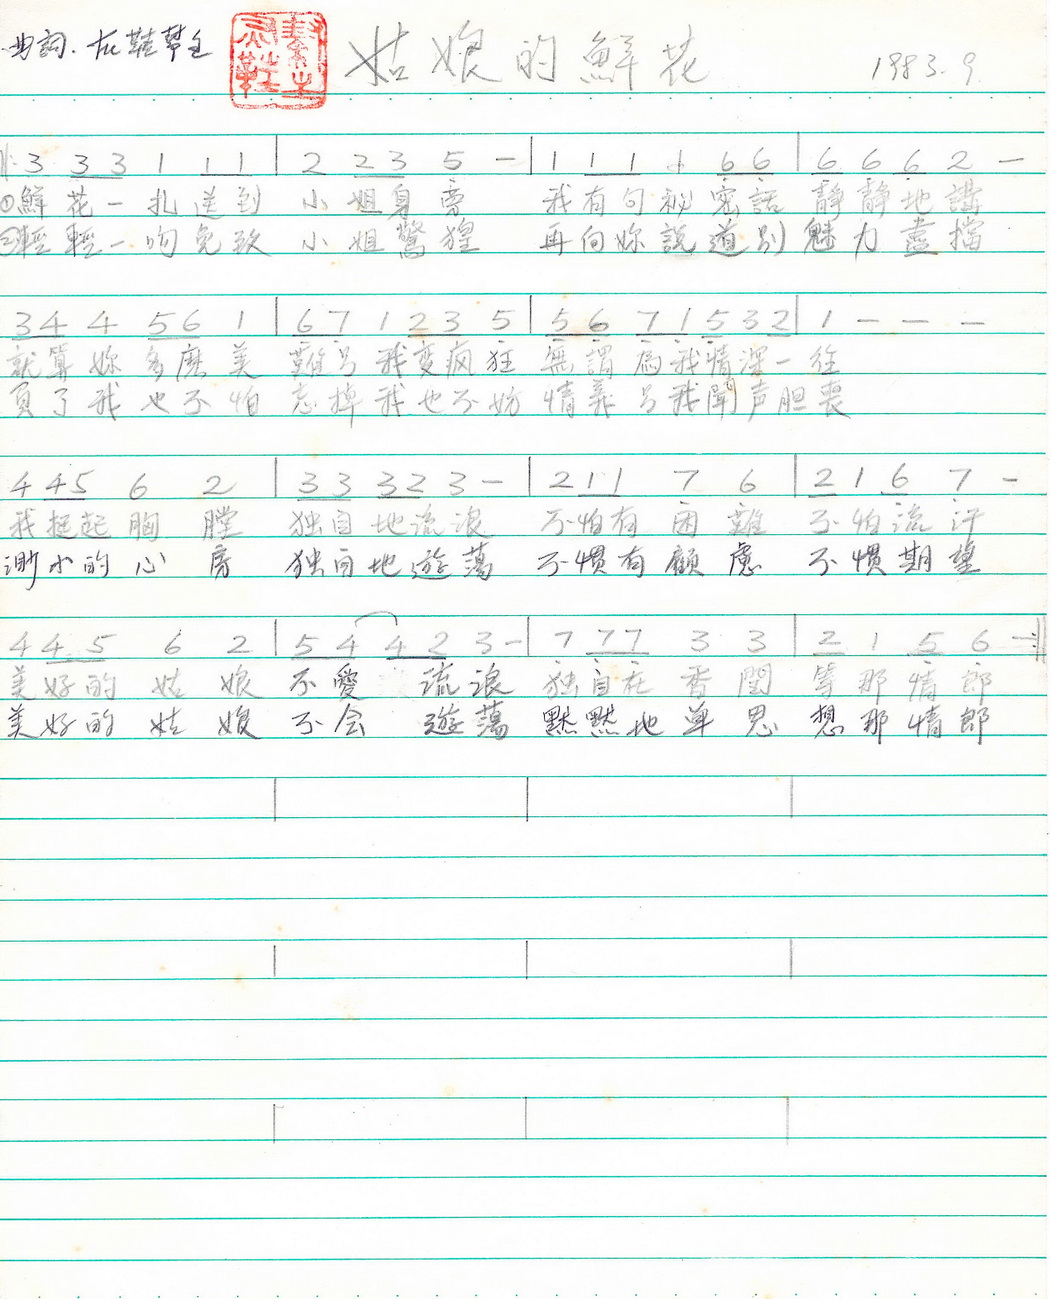 曲詞．左鞋幫主 姑娘的鮮花 1983.9.
3 33 1 11 | 2 23 5 — | 1 11 1 66 | 6 66 2 —
①鮮花一扎送到 小姐身旁 我有句秘密話 靜靜地講
②輕輕一吻免致 小姐驚惶 再向妳說道別 魅力盡擋
34 4 56 1 | 67 1 23 5 | 56 71 532 | 1 — — —
就算妳多麼美 難引我变疯狂 無謂為我情深一往
負了我也不怕 忘掉我也不妨 情義引我聞声胆喪
4 45 6 2 | 33 32 3 — | 2 11 7 6 | 2 1 6 7 —
我挺起胸膛 独自地流浪 不怕有困難 不怕流汗
渺小的心房 独自地遊蕩 不慣有顧慮 不慣期望
4 45 6 2 | 54 42 3 — | 7 77 3 3 | 2 1 5 6 —
美好的姑娘 不愛流浪 独自在香閨 等那情郎
美好的姑娘 不会遊蕩 黙黙地单思 想那情郎